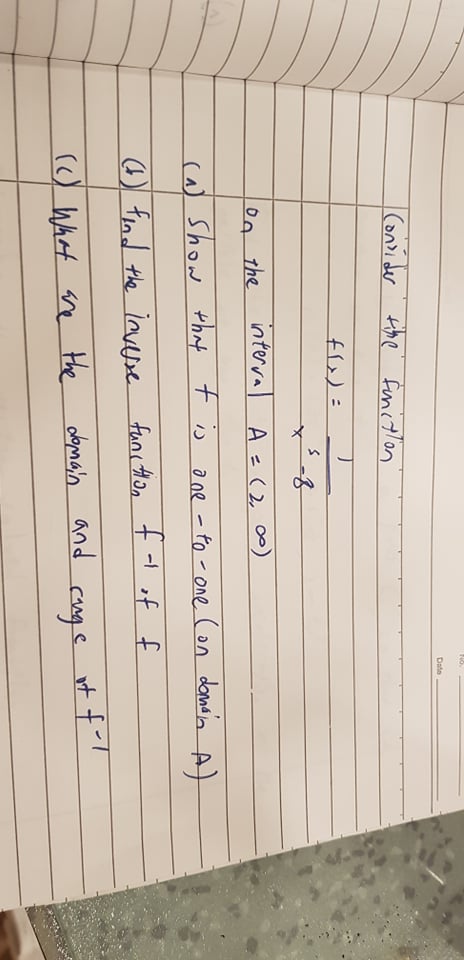 No.
Date
Consider the function
f(x) = 1 / x^5 - 8
on the interval A = (2, ∞)
(a) Show that f is one-to-one (on domain A)
(b) find the inverse function f^-1 of f
(c) What are the domain and range of f^-1